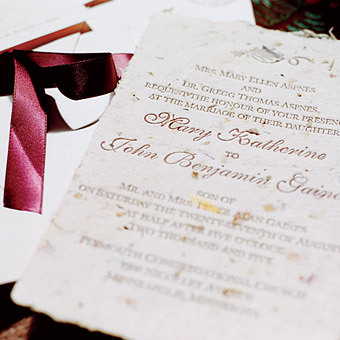 Mrs. Mary Ellen Aspnes
and
Dr. Gregg Thomas Aspnes
request the honour of your presence
at the marriage of their daughter
Mary Katherine
to
John Benjamin Gaines
son of
Mr. and Mrs. Alan Gaines
on Saturday the twenty-seventh of August
at half after five o'clock
two thousand and five
Plymouth Congregational Church
1900 Nicollet Avenue
Minneapolis, Minnesota